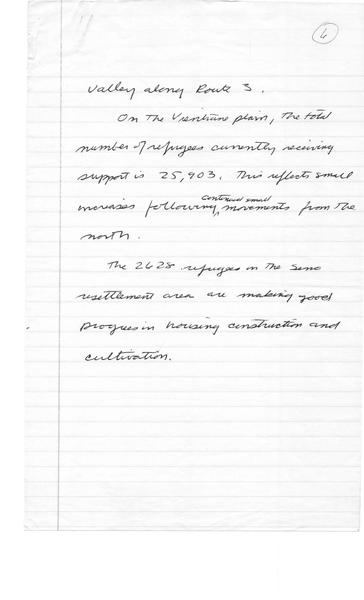 6
Valley along Route 3.
On The Vientiane plain, The total
number of refugees currently receiving
support is 25,903. This reflects small
continued small
increases following movements from The
north.
The 2628 refugees in The Seno
resettlement area are making good
progress in housing construction and
cultivation.